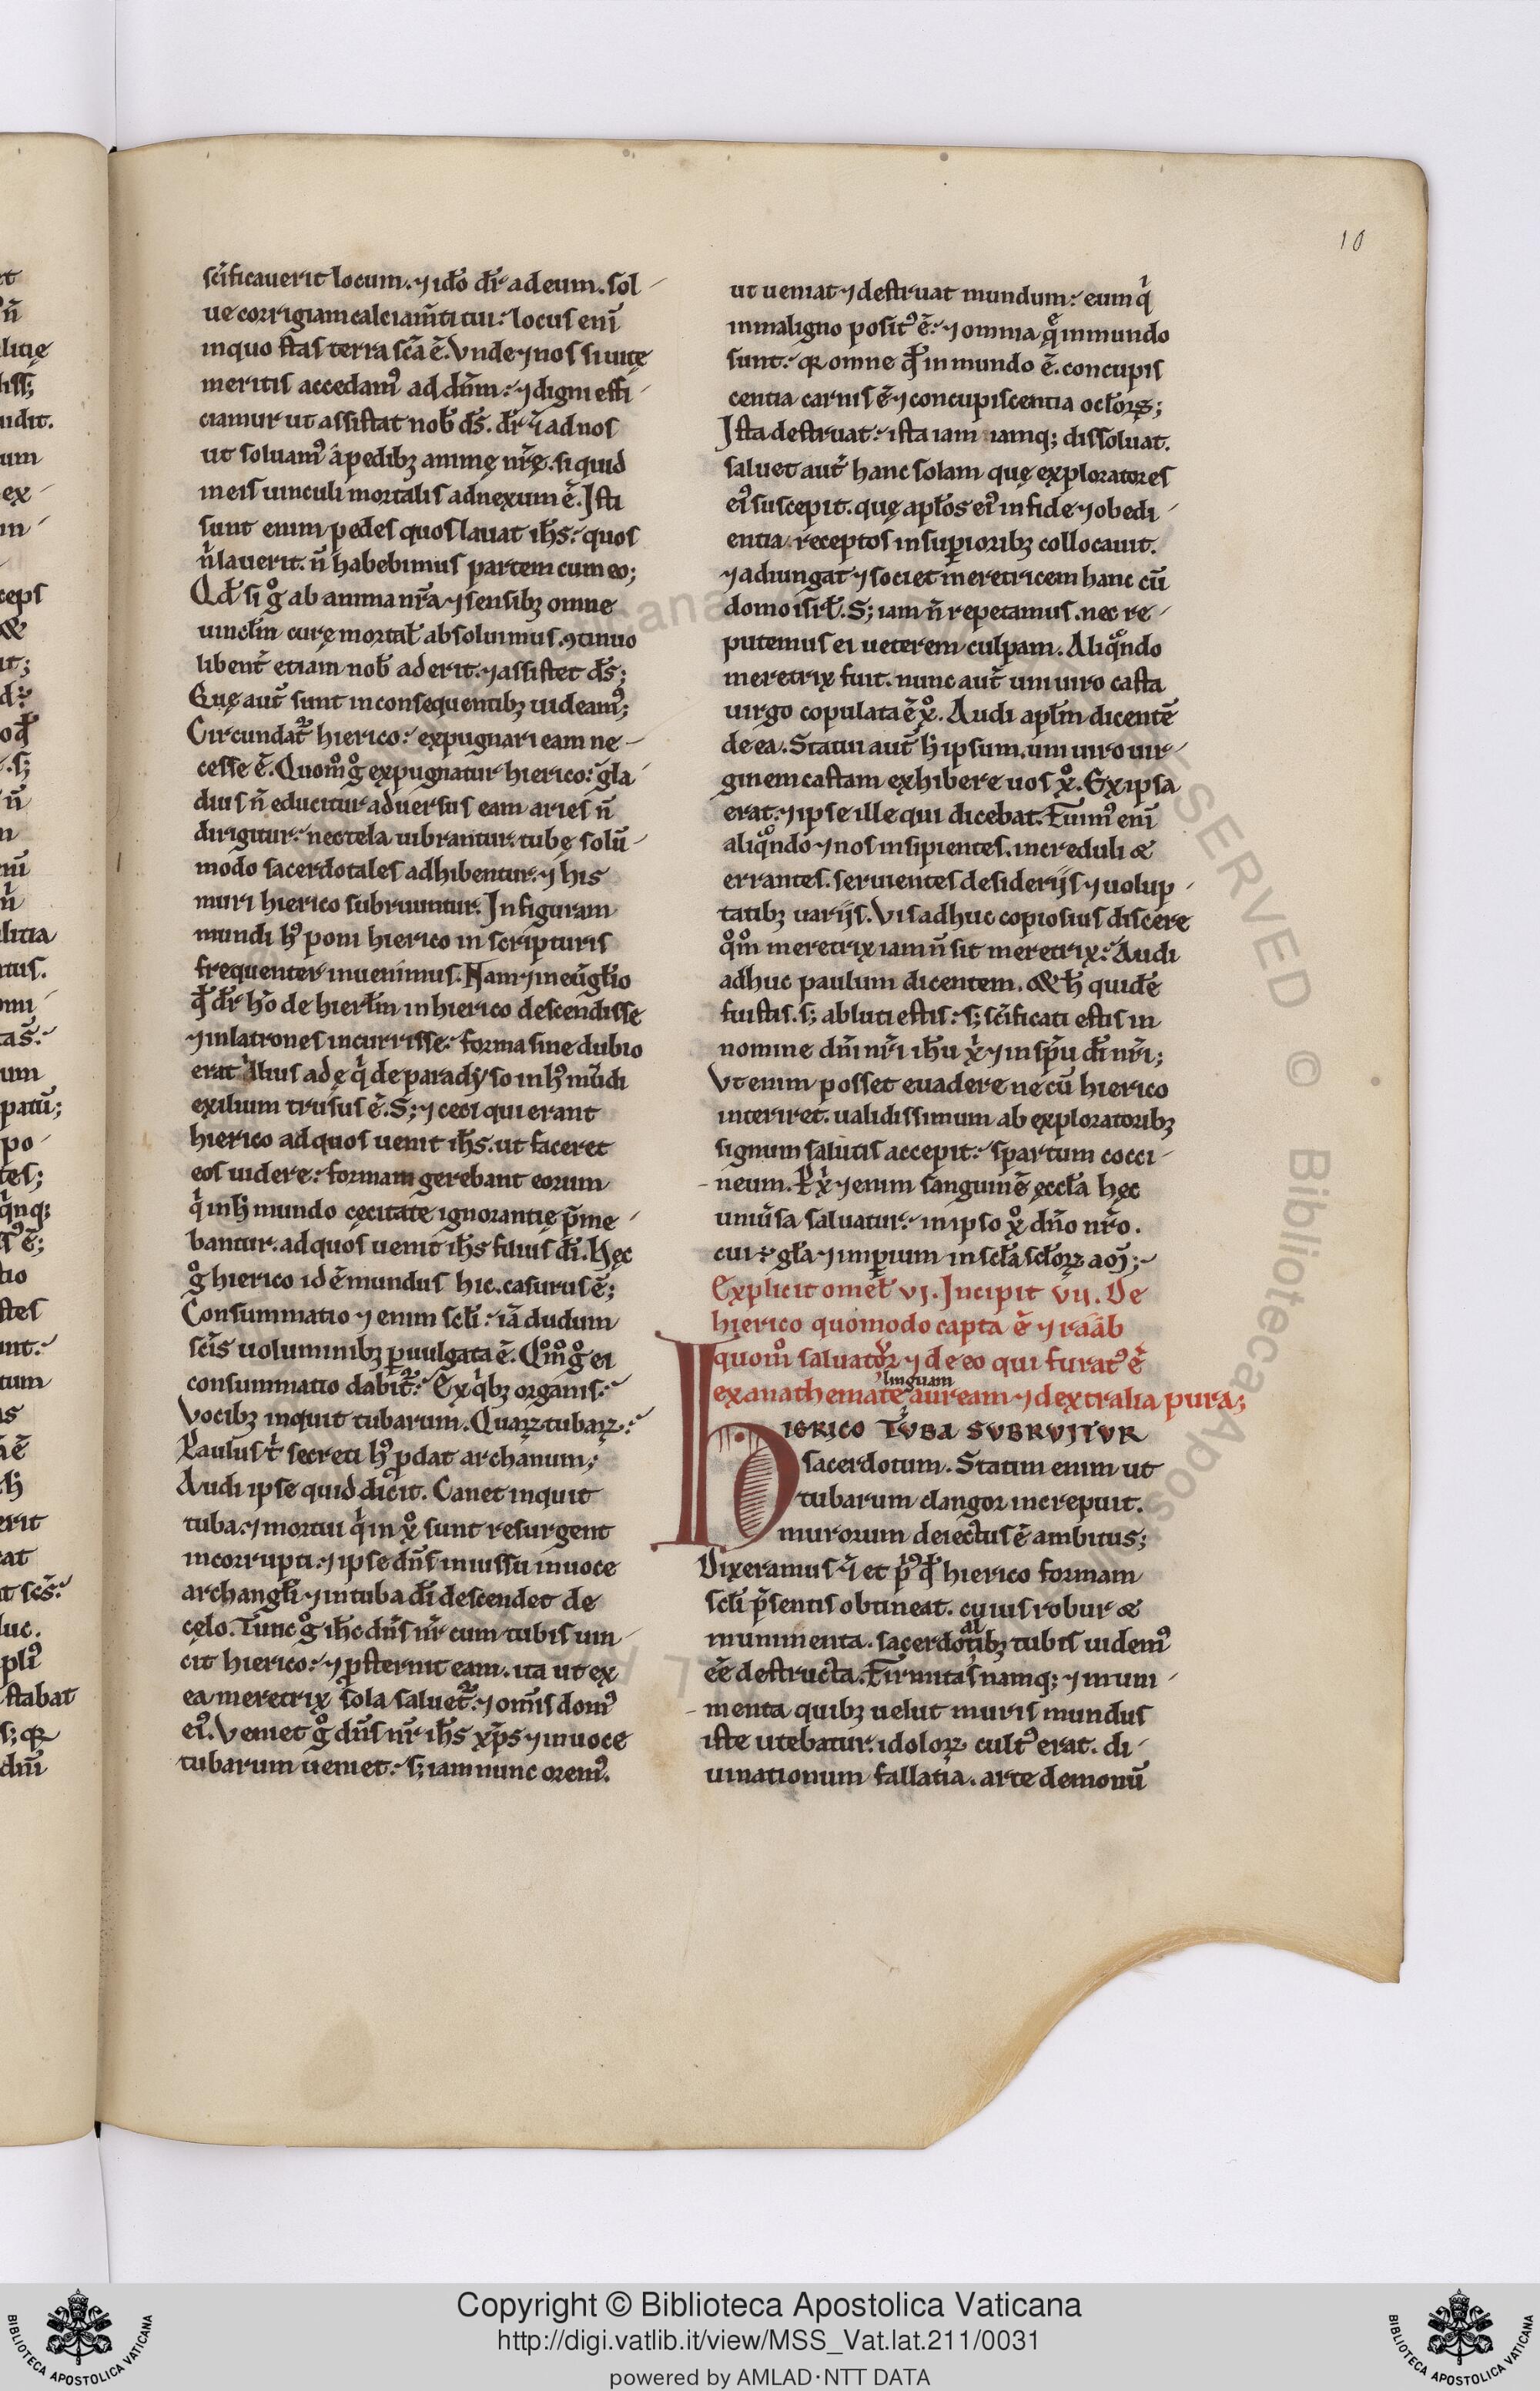 10
scīficauerit locum. ⁊ idō dr̄ ad eum. sol-
ue corrigiam calciam̄ti tui: locus enī
in quo stas terra scā ē. Vnde ⁊ nos si uitę
meritis accedam᷒ ad dn̄m: ⁊ digni effi-
ciamur ut assistat nob̄ ds̄. dr̄ ⁊ ad nos
ut soluam᷒ a pedibꝫ animę nr̄ę. si quid
in eis uinculi mortalis adnexum ē. Isti
sunt enim pedes quos lauat ih̄s: quos
n̄ lauerit. n̄ habebimus partem cum eo;
Qd̄ si gͦ ab anima nr̄a ⁊ sensibꝫ omne
uincl̄m curę mortal̄ absoluimus. ꝯtinuo
libent̄ etiam nob̄ aderit. ⁊ assistet ds̄;
Quę aut̄ sunt in consequentibꝫ uideam᷒;
Circundat᷑ hierico: expugnari eam ne-
cesse ē. Quom̊ gͦ expugnatur hierico: gla-
dius n̄ educitur aduersus eam aries n̄
dirigitur: nec tela uibrantur. tubę solū-
modo sacerdotales adhibentur. ⁊ his
muri hierico subruuntur. In figuram
mundi h᷒ poni hierico in scripturis
frequenter inuenimus. Nam ⁊ in eūgl̄io
qd̄ dr̄ hō de hierl̄m in hierico descendisse
⁊ in latrones incurrisse: forma sine dubio
erat illius adę qͥ de paradyso in h᷒ mūdi
exilium trusus ē. S; ⁊ ceci qui erant
hierico ad quos uenit ih̄s. ut faceret
eos uidere: formam gerebant eorum
qͥ in h̄ mundo cęcitate ignorantię p̄me-
bantur. ad quos uenit ih̄s filius dī. Hęc
gͦ hierico id ē mundus hic. casurus ē;
Consummatio ⁊ enim scl̄i: iā dudum
scīs uoluminibꝫ ꝑuulgata ē. Qm̊ gͦ ei
consummatio dabit᷑: Ex qͥbꝫ organis:
Vocibꝫ inquit tubarum. Quaꝝ tubaꝝ:
Paulus t̄ secreti h᷒ ꝓdat archanum;
Audi ipse quid dicit. Canet inquit
tuba. ⁊ mortui qͥ in xͦ sunt resurgent
incorrupti. ⁊ ipse dn̄s in iussu in uoce
archangl̄i ⁊ in tuba dī descendet de
cęlo. Tunc gͦ ih̄c dn̄s nr̄ cum tubis uin-
cit hierico: ⁊ ꝓsternit eam. ita ut ex
ea meretrix sola saluet᷑. ⁊ om̄is dom᷒
ei᷒. Veniet gͦ dn̄s nr̄ ih̄s xp̄s ⁊ in uoce
tubarum ueniet: s; iam nunc orem᷒.
ut ueniat ⁊ destruat mundum: eum qͥ
in maligno posit᷒ ē: ⁊ omnia q̄ in mundo
sunt: qꝛ omne qd̄ in mundo ē. concupis
centia carnis ē ⁊ concupiscentia ocl̄oꝝ;
Ista destruat: ista iam iamq; dissoluat.
saluet aut̄ hanc solam quę exploratores
ei᷒ suscepit. quę apl̄os ei᷒ in fide ⁊ obedi-
entia receptos in supioribꝫ collocauit.
⁊ adiungat ⁊ societ meretricem hanc cū
domo isrl̄. S; iam n̄ repetamus. nec re-
putemus ei ueterem culpam. Aliqͦndo
meretrix fuit. nunc aut̄ uni uiro casta
uirgo copulata ē xͦ. Audi apl̄m dicentē
de ea. Statui aut̄ h̄ ipsum. uni uiro uir-
ginem castam exhibere uos xͦ. Ex ipsa
erat. ⁊ ipse ille qui dicebat. Fuim᷒ enī
aliqͦndo ⁊ nos insipientes. increduli &
errantes. seruientes desiderijs ⁊ uolup-
tatibꝫ uarijs. Vis adhuc copiosius discere
qͦm̊ meretrix iam n̄ sit meretrix: Audi
adhuc paulum dicentem. & h̄ quidē
fuistis. s; abluti estis: s; scīficati estis in
nomine dn̄i nr̄i ih̄u xͥ ⁊ in sp̄u dī nr̄i;
Vt enim posset euadere ne cū hierico
interiret. ualidissimum ab exploratoribꝫ
signum salutis accepit: spartum cocci-
neum. P xͥ ⁊ enim sanguinē ęccl̄a hęc
uniūsa saluatur: in ipso xͦ dn̄o nr̄o.
cui ÷ gl̄a ⁊ imꝑium in scl̄a scl̄oꝝ am̄;
Explicit omel̄ VI. Incipit VII. De
hierico quomodo capta ē ⁊ raab
quom̊ saluator᷑ ⁊ de eo qui furat᷒ ē
linguam
ex anathemate auream ⁊ dextralia pura;
HIERICO TVBA SVBRVITVR
sacerdotum. Statim enim ut
tubarum clangor increpuit.
murorum deiectus ē ambitus;
Dixeramus ⁊ et pͥ᷒ qd̄ hierico formam
scl̄i p̄sentis obtineat. cuius robur &
al
munimenta. sacerdotibꝫ tubis uidem᷒
eē destructa. Firmitas namq; ⁊ muni-
menta quibꝫ uelut muris mundus
iste utebatur. idoloꝝ cult᷒ erat. di-
uinationum fallatia. arte demonū
Copyright © Biblioteca Apostolica Vaticana
http://digi.vatlib.it/view/MSS_Vat.lat.211/0031
powered by AMLAD·NTT DATA
BIBLIOTECA APOSTOLICA VATICANA
BIBLIOTECA APOSTOLICA VATICANA